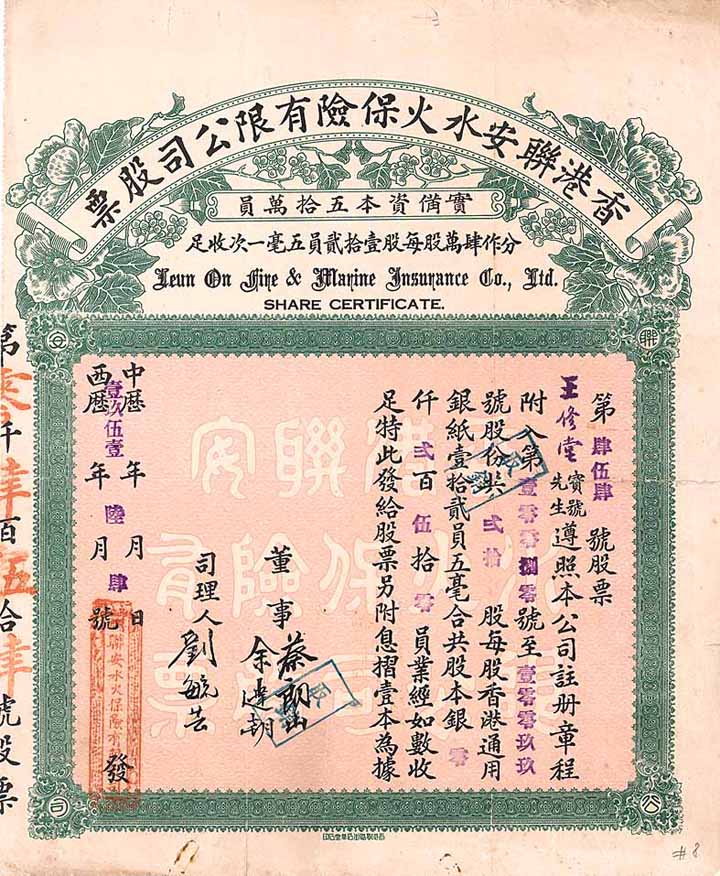 香港聯安水火保險有限公司股票
實備資本五拾萬員
分作肆萬股每股壹拾貳員五毫一次收足
Leun On Fire & Marine Insurance Co., Ltd.
SHARE CERTIFICATE.
聯
安
公
司
第肆伍肆號股票
王修堂寶號先生遵照本公司註册章程
附入第壹零零捌零號至壹零零玖玖
號股份共弍拾股每股香港通用
銀紙壹拾貳員五毫合共股本銀零
仟弍百伍拾零員業經如數收
足特此發給股票另附息摺壹本為據
董事
司理人劉毓芸
中歷年月日
西歷壹玖伍壹年陸月肆號發
香港聯安水火保險有限公司股票
仟百拾號股票
#8